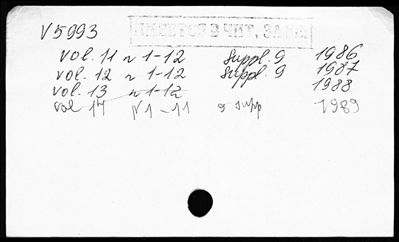 V5993
ИМЕЕТСЯ В ЧИТ. ЗАЛЕ
vol. 11 n 1-12 Suppl. 9 1986
vol. 12 n 1-12 Suppl. 9 1987
vol. 13 n 1-12 1988
vol 14 N 1-11 9 supp 1989